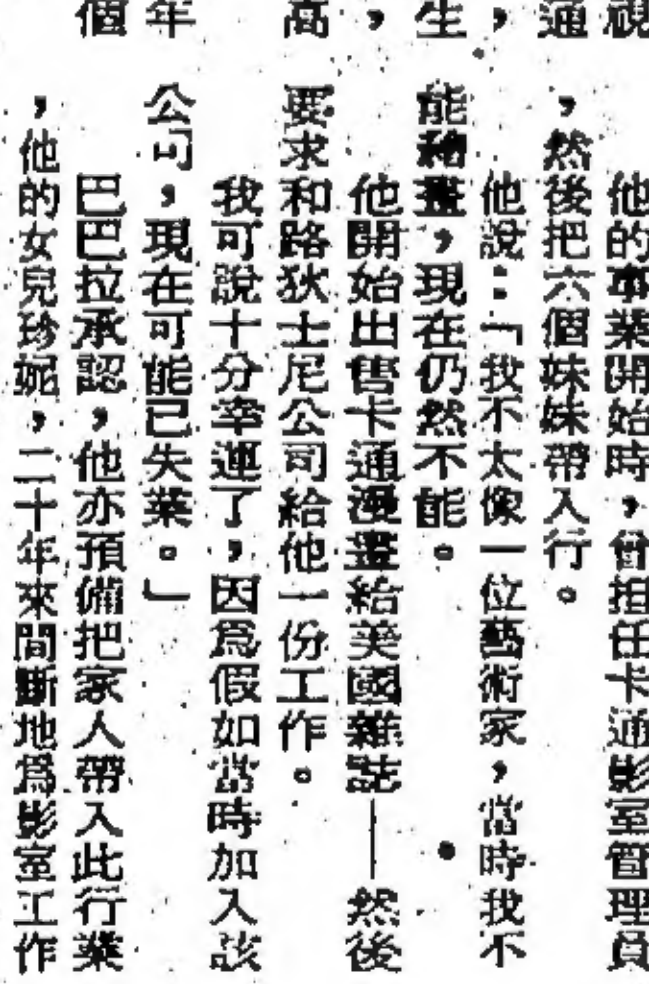 他的事業開始時，曾担任卡通影室管理員
，然後把六個妹妹帶入行。
他說：「我不太像一位藝術家，當時我不
能繪畫，現在仍然不能。
他開始出售卡通漫畫給美國雜誌——然後
要求和路狄士尼公司給他一份工作。
我可說十分幸運了，因為假如當時加入該
公司，現在可能已失業。」
巴巴拉承認，他亦預備把家人帶入此行業
，他的女兒珍妮，二十年來間斷地為影室工作
視
通
，
生
，
高
年
個